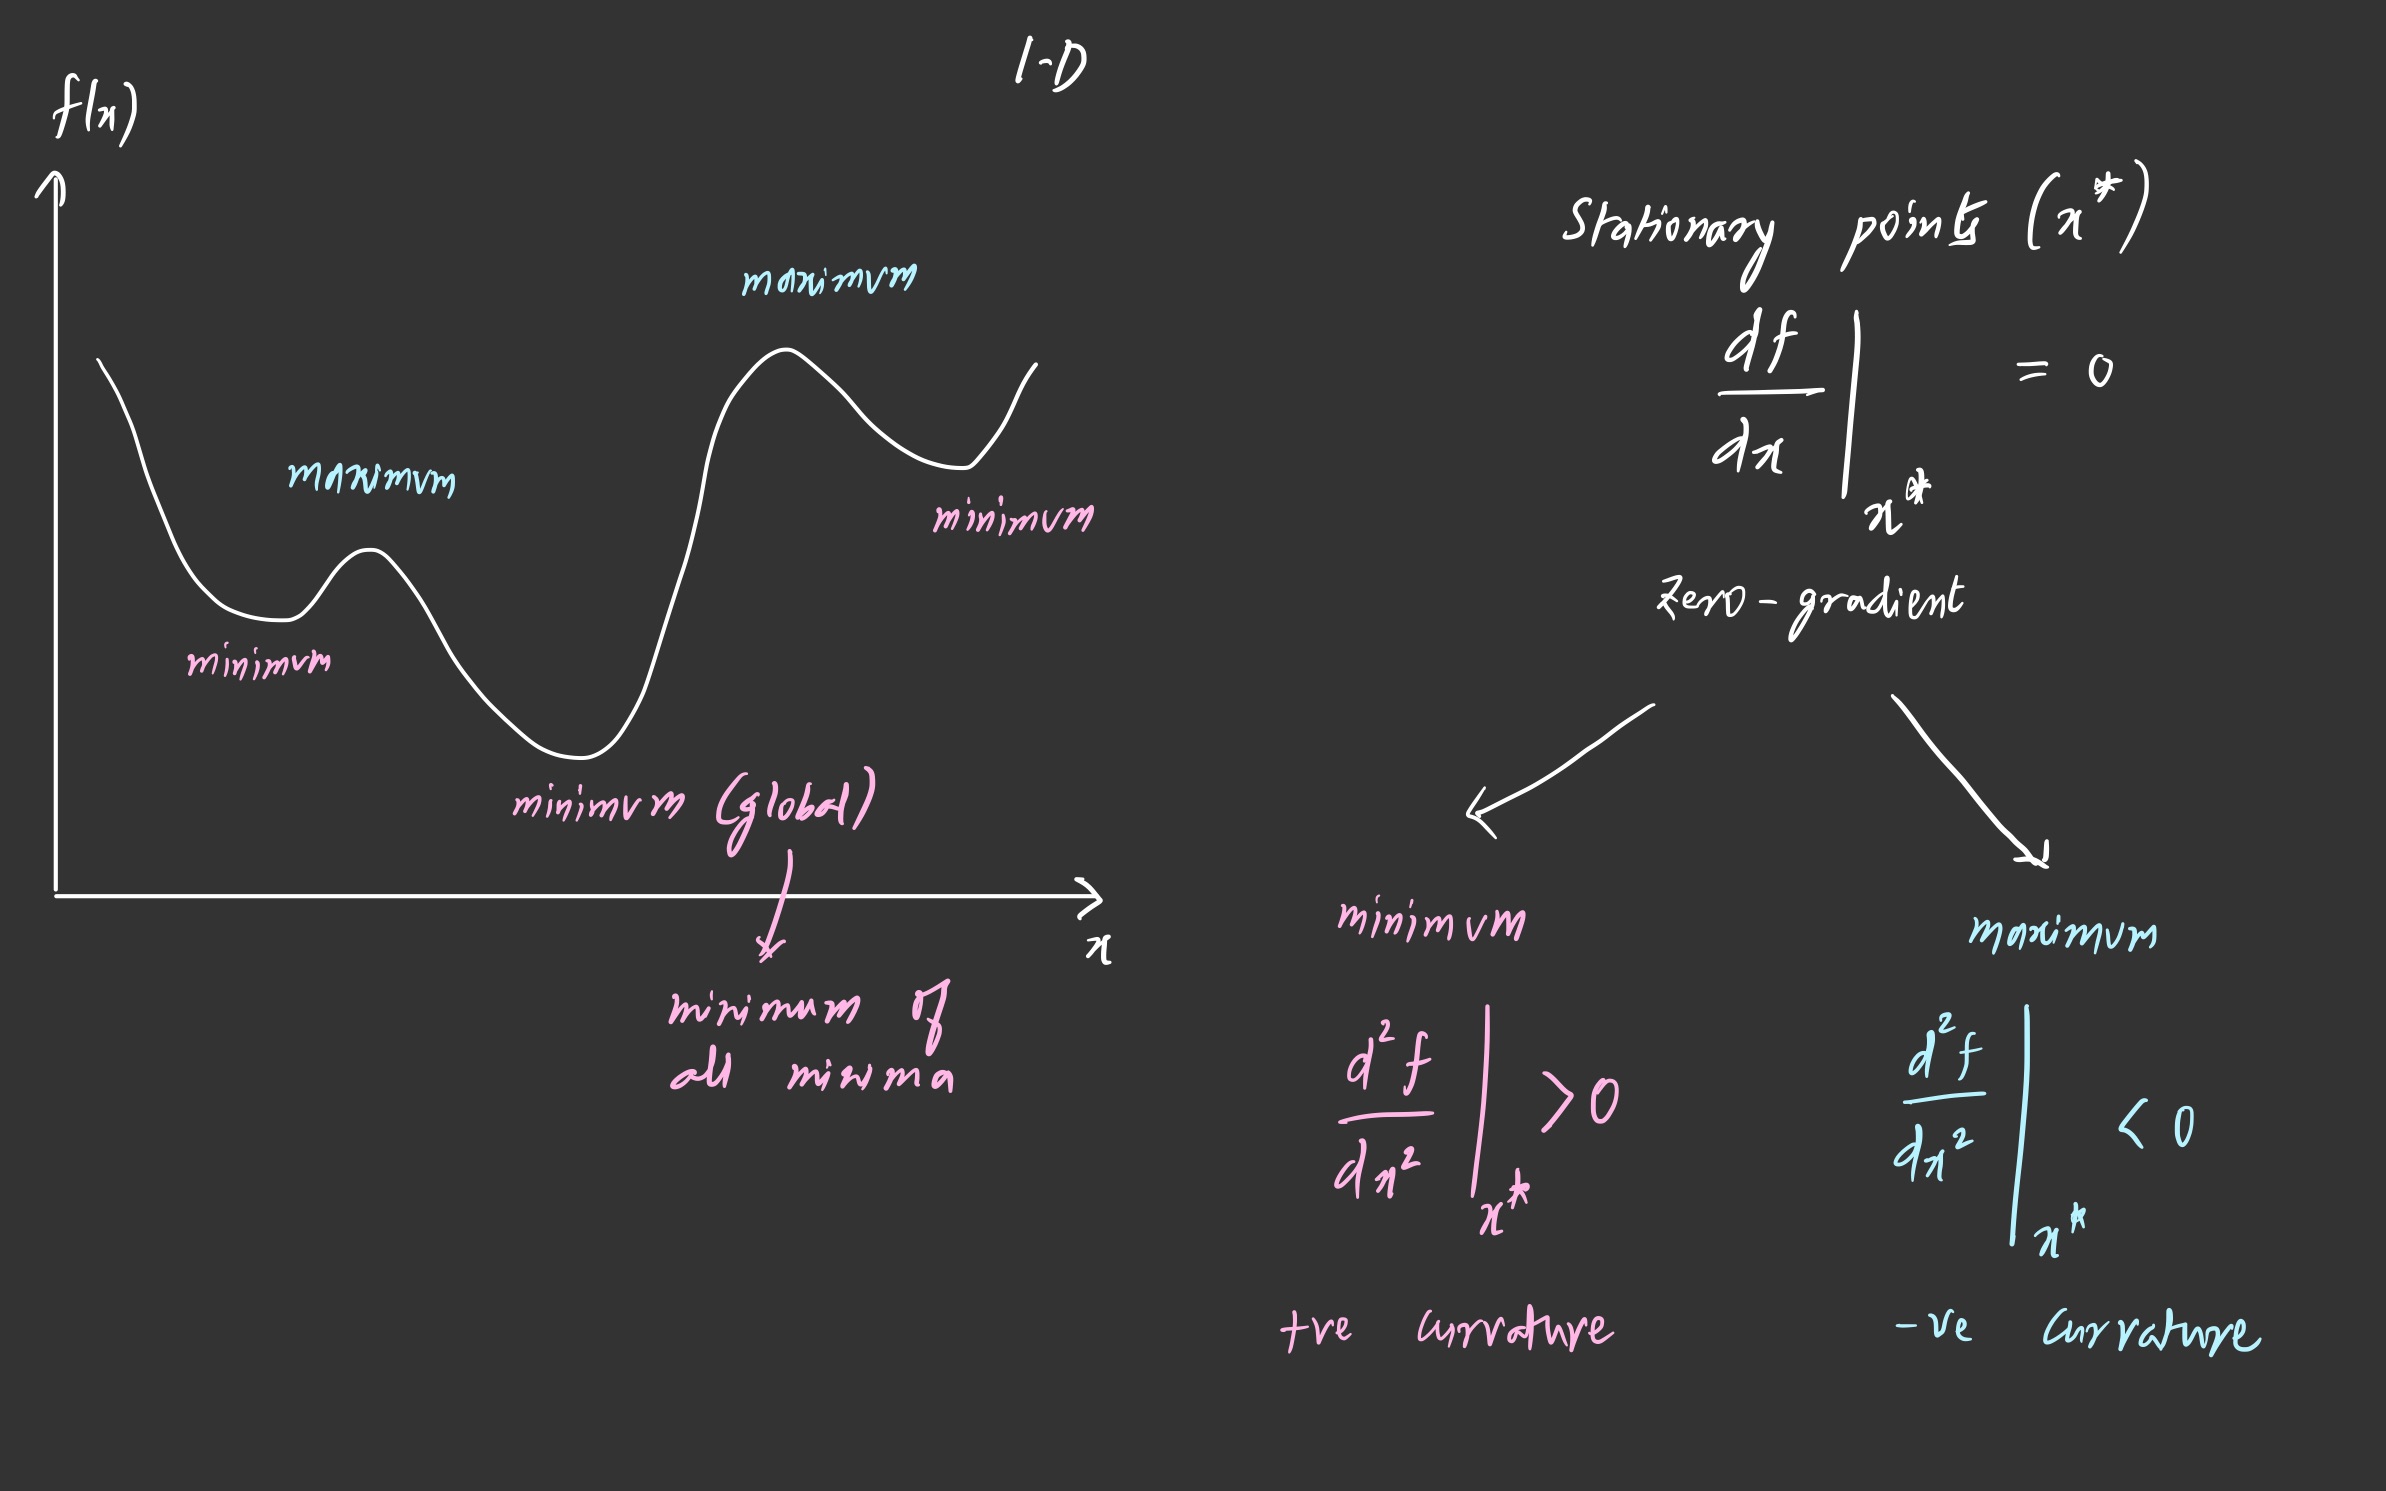 1-D
f(x)
maximum
maximum
minimum
minimum
minimum (global)
x
minimum of
all minima
Stationary points (x*)
df
dx
x*
= 0
Zero-gradient
minimum
d²f
dx²
x*
>0
+ve curvature
maximum
d²f
dx²
x*
< 0
-ve curvature